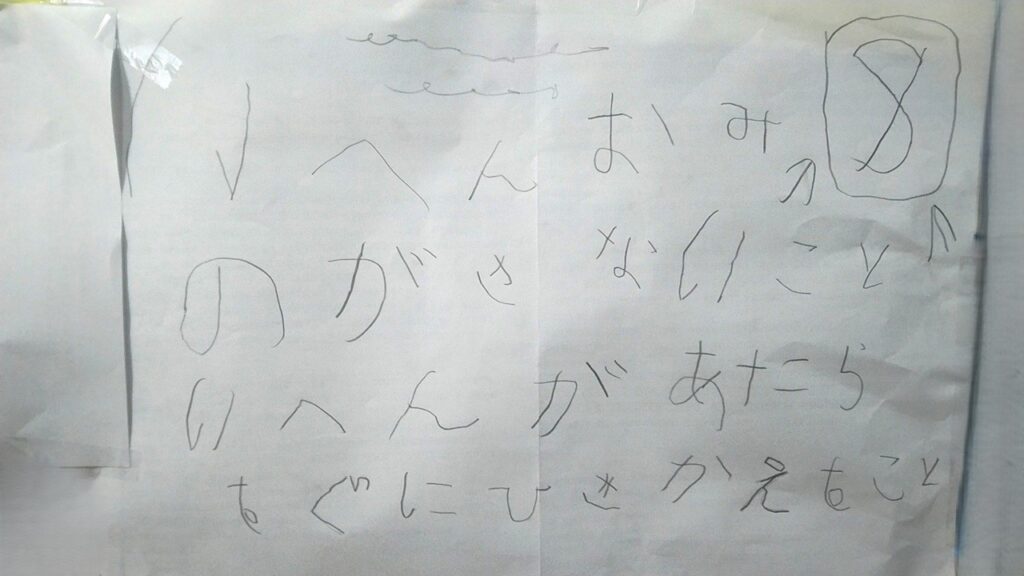 いへんおみ 8
のがさないこと
いへんがあたら
すぐにひきかえすこと